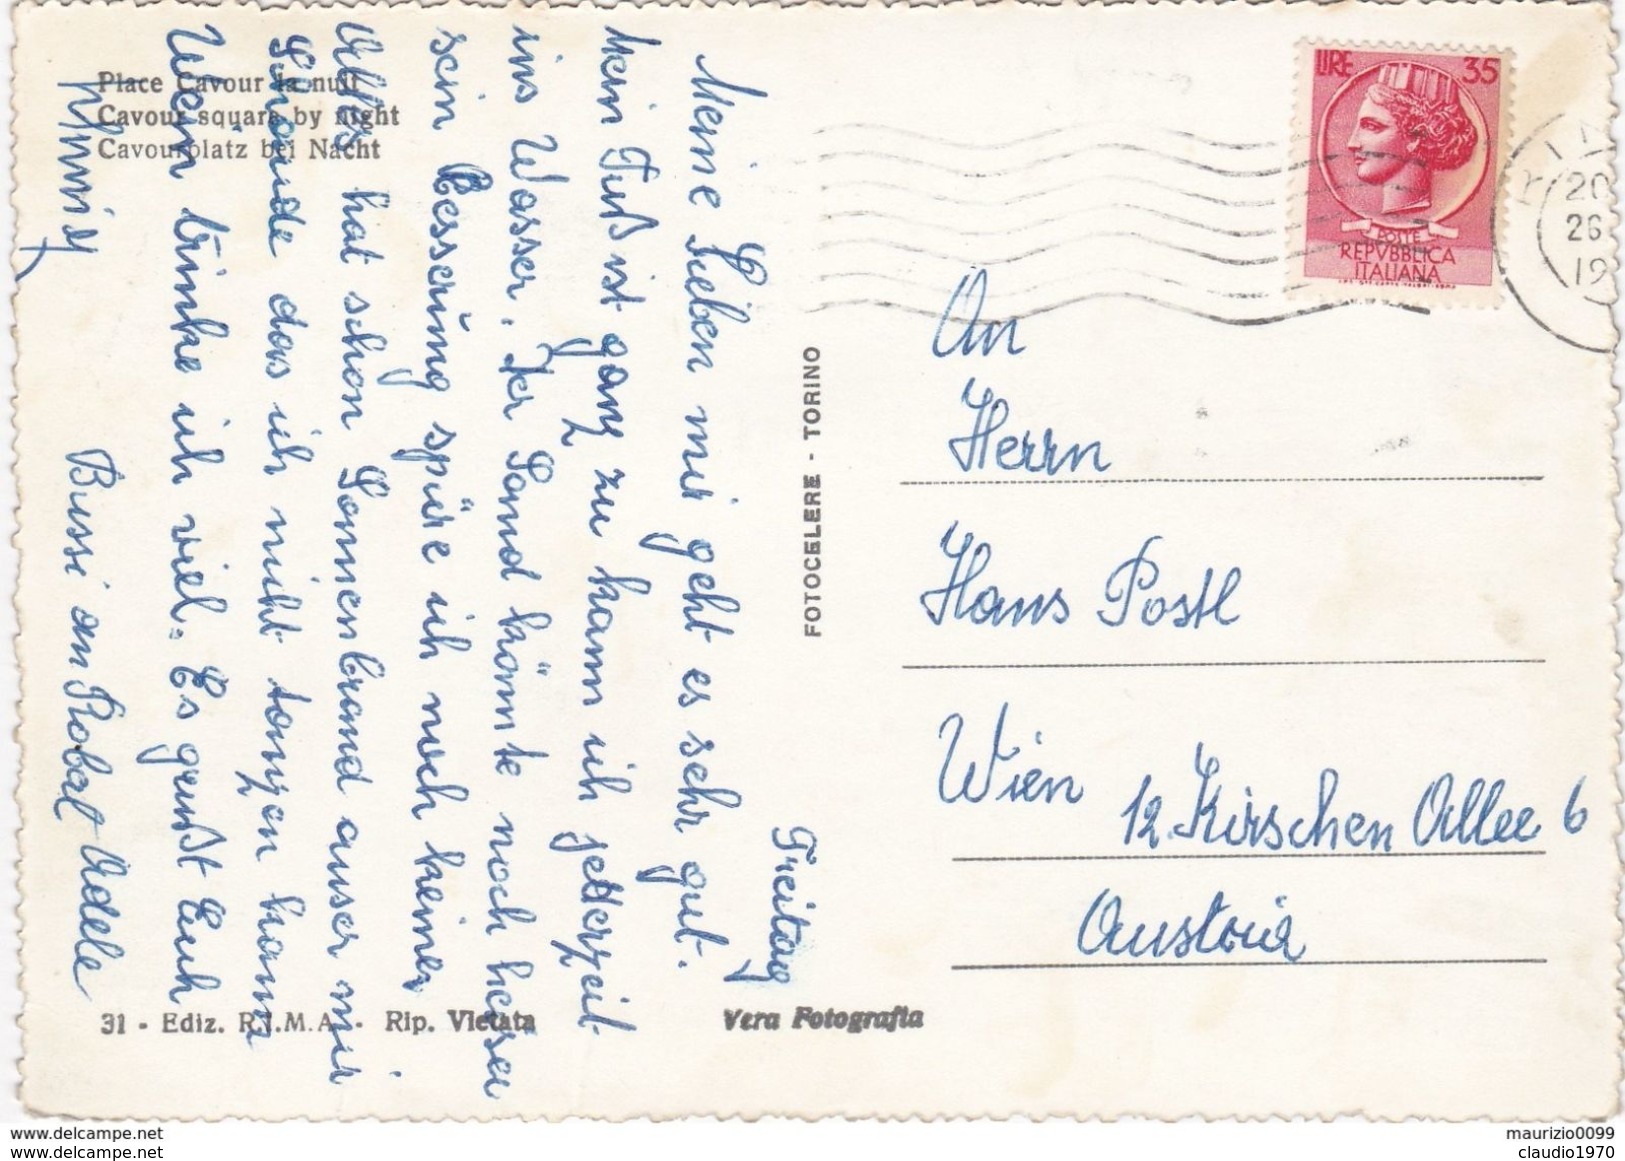 Place Cavour la nuit
Cavour square by night
Cavourplatz bei Nacht
Freitag
Meine Lieben mir geht es sehr gut.
Mein Fuß ist ganz zu kann ich jederzeit
ins Wasser. Der Sand könnte noch heiser
sein Besserung spüre ich noch keine
Alles hat schon Sonnenbrand auser mir
Schade das ich nicht tanzen kann
Wein trinke ich viel. Es grußt Euch
Bussi an Robert Adele
FOTOCELERE - TORINO
31 - Ediz. R.I.M.A. - Rip. Vietata
Vera Fotografia
LIRE 35
POSTE
REPVBBLICA
ITALIANA
20
26
19
An
Herrn
Hans Postl
Wien
12. Kirschen Allee 6
Austria
www.delcampe.net
www.delcampe.net
maurizio0099
claudio1970